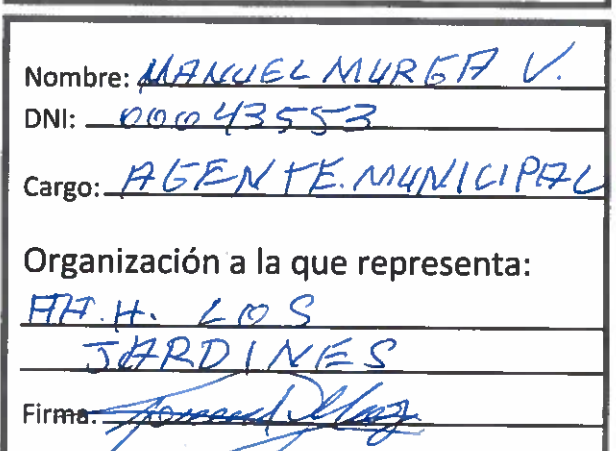 Nombre: MANUEL MURGA V.
DNI: 00043553
Cargo: AGENTE. MUNICIPAL
Organización a la que representa:
AA.H. LOS
JARDINES
Firma: